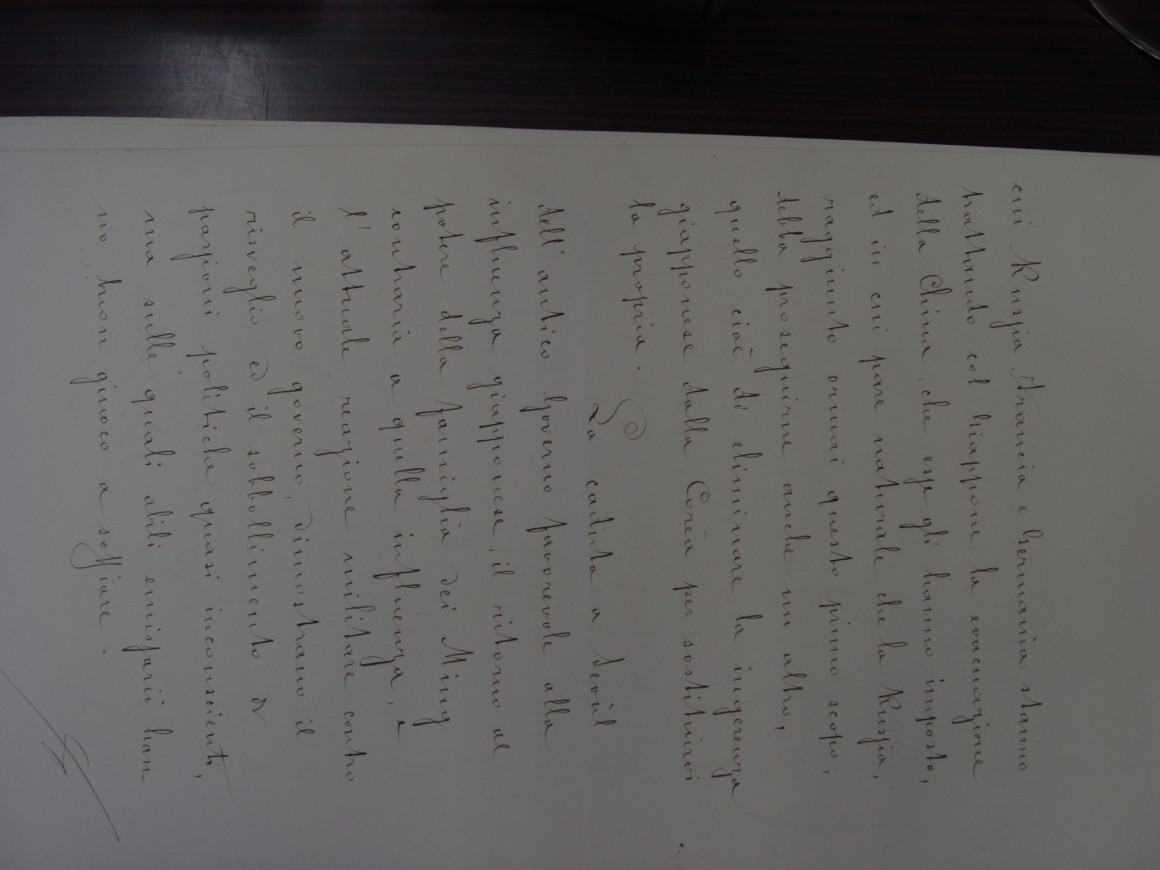 cui Russia, Francia e Germania stanno
trattando col Giappone la evacuazione
della China, che esse gli hanno imposto,
ed in cui pare naturale che la Russia,
raggiunto ormai questo primo scopo,
debba proseguirne anche un altro,
quello cioè di eliminare la ingerenza
giapponese dalla Corèa per sostituirvi
la propria.
La caduta a Seoul
dell'antico Governo favorevole alla
influenza giapponese, il ritorno al
potere della famiglia dei Ming
contraria a quella influenza, e
l'attuale reazione militare contro
il nuovo governo, dimostrano il
risveglio ed il sobbollimento di
passioni politiche quasi inconscienti,
ma sulle quali abili emissarii han-
no buon giuoco a soffiare.